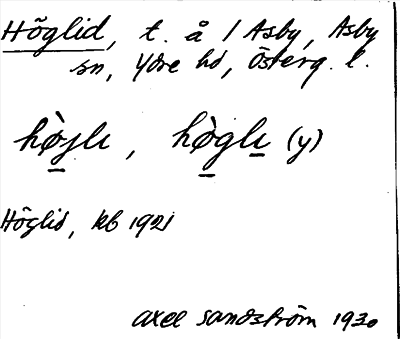 Höglid, t. å / Asby, Asby
sn, Ydre hd, Österg. l.
hø̀jlı, hø̀glı (y)
Höglid, kb 1921
Axel Sandström 1930